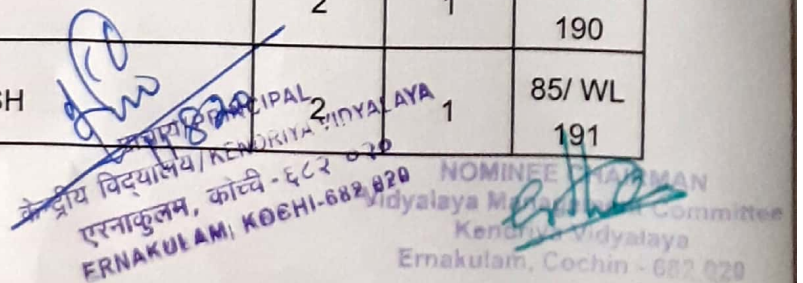 2 1 190
SH 2 1 85/ WL 191
प्राचार्य/PRINCIPAL
केन्द्रीय विद्यालय/KENDRIYA VIDYALAYA
एरनाकुलम, कोच्ची - ६८२ ०२०
ERNAKULAM, KOCHI-682 020
NOMINEE CHAIRMAN
Vidyalaya Management Committee
Kendriya Vidyalaya
Ernakulam, Cochin - 682 020